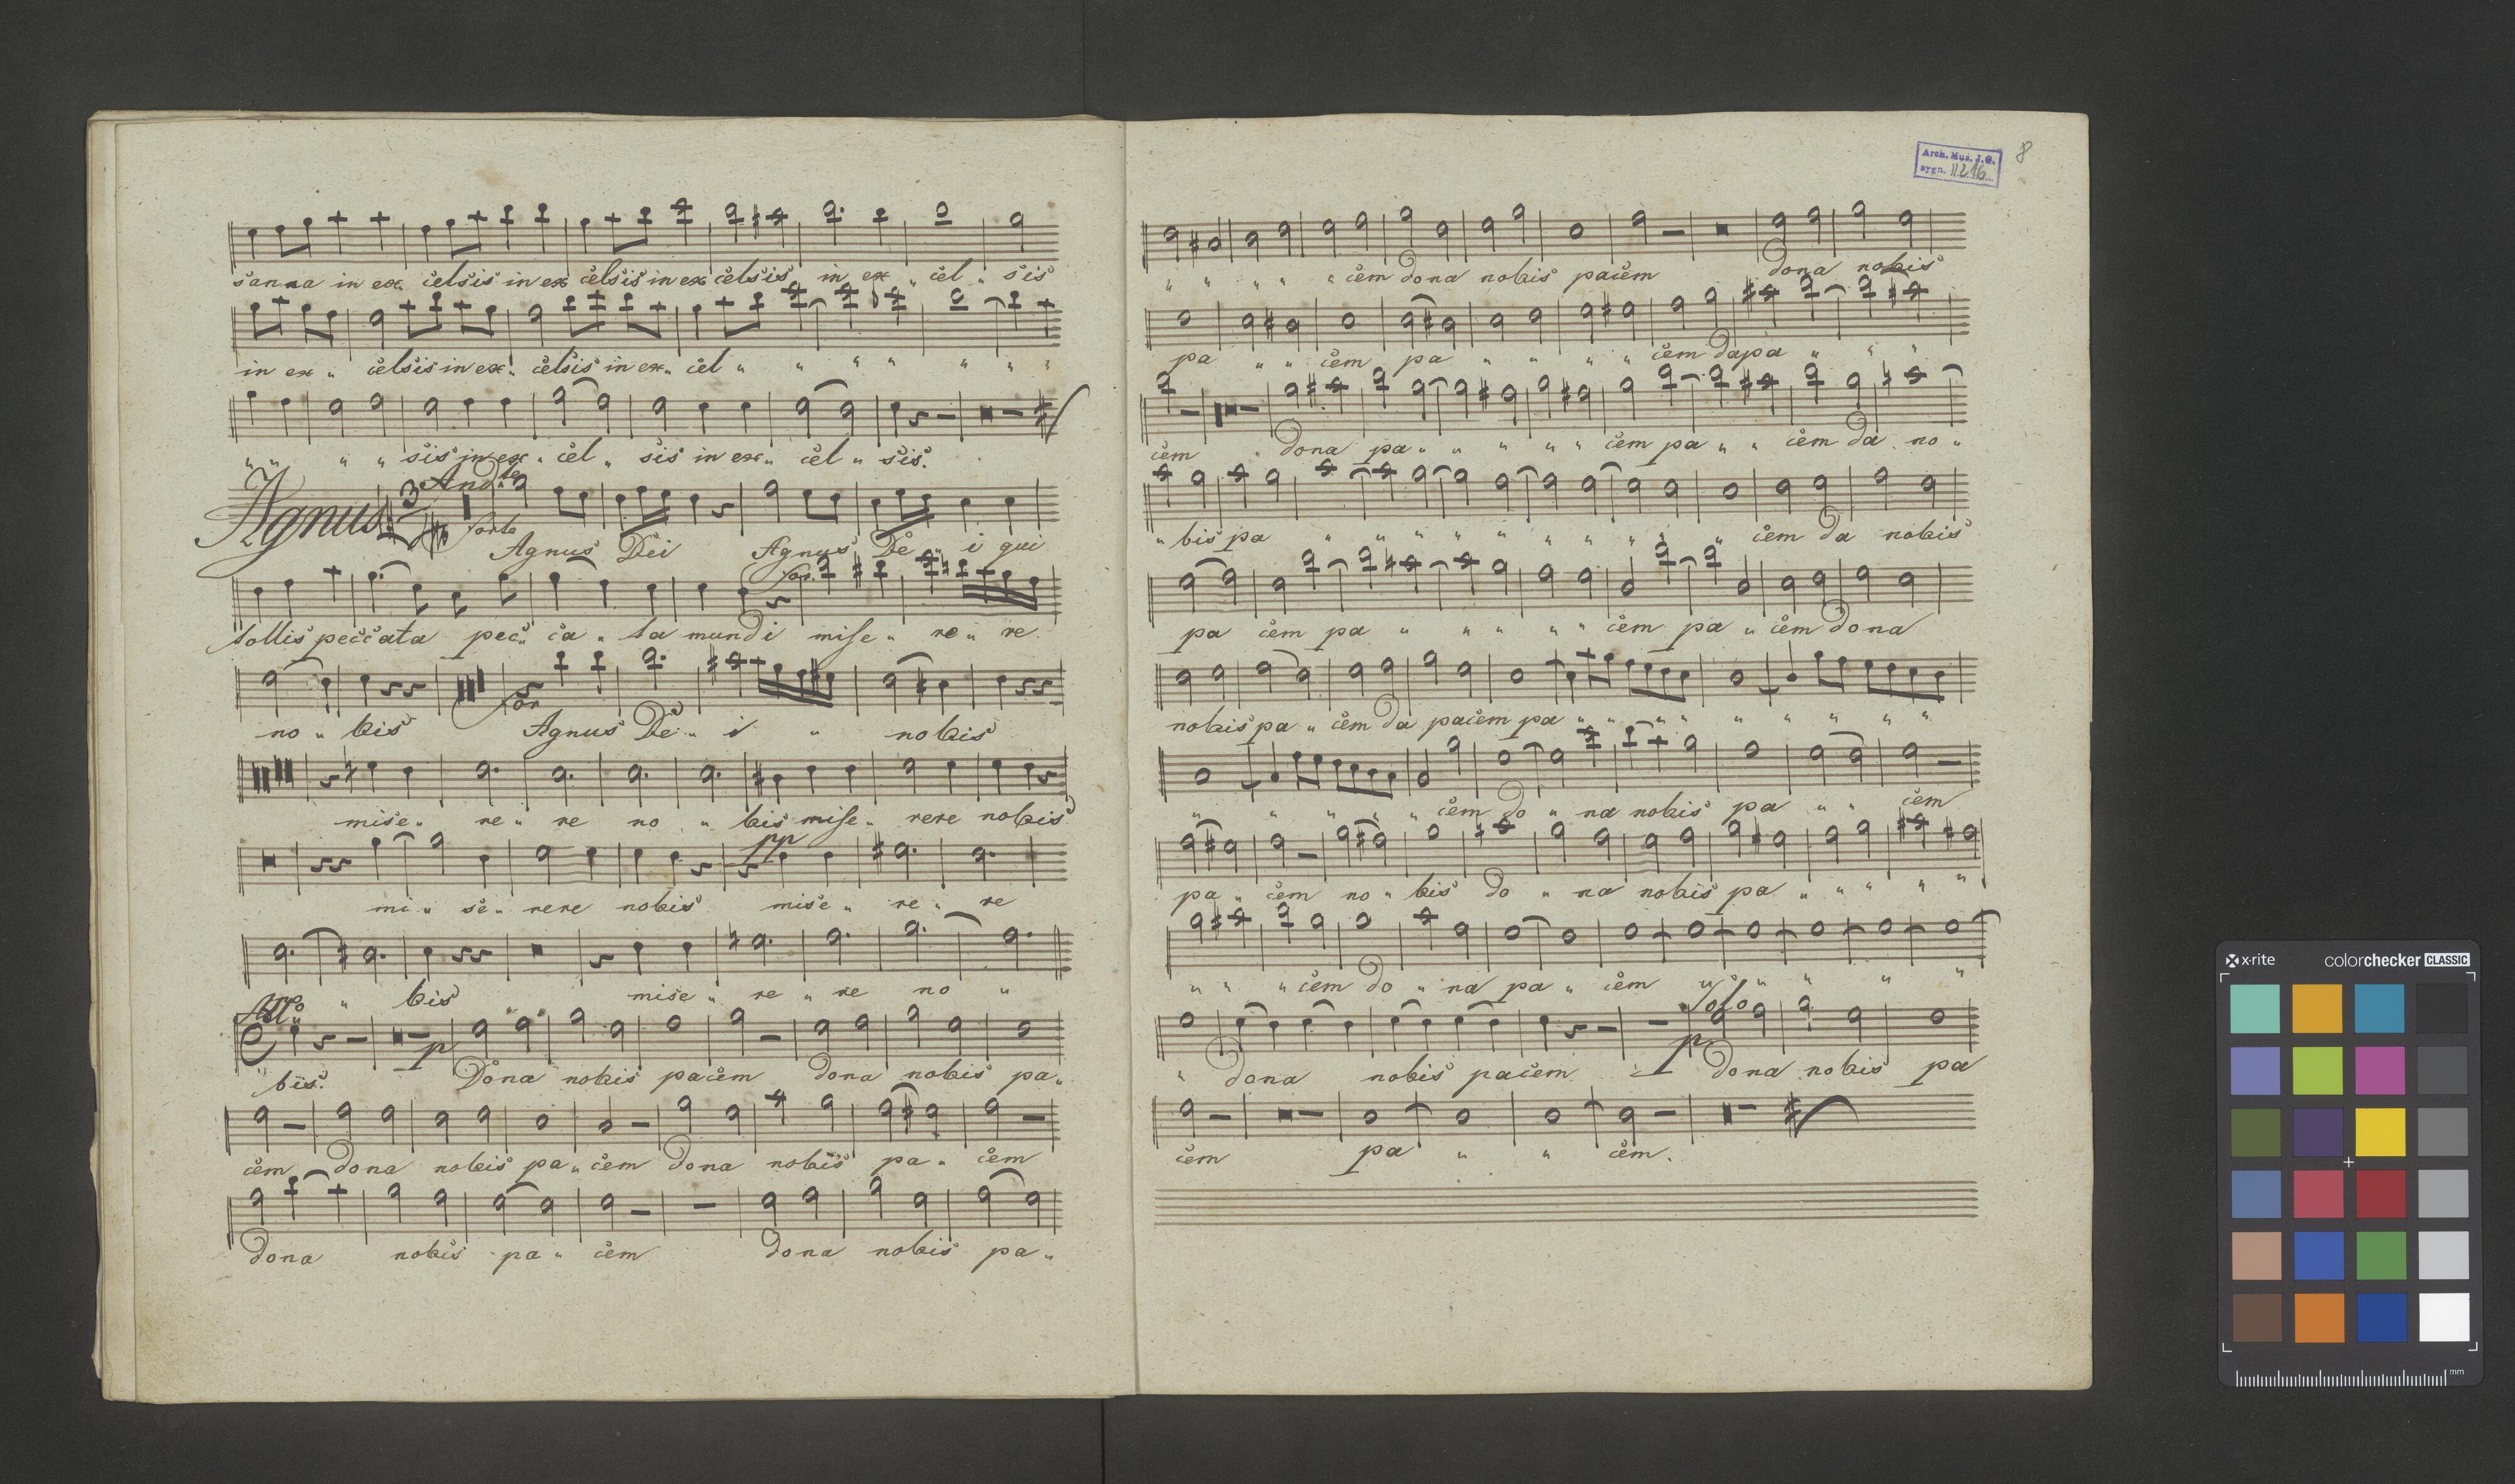 sanna in ex„ celsis in ex celsis in ex celsis in ex „ cel „ sis
in ex „ celsis in ex„ celsis in ex„ cel „ „ „ „ „ „ „
„ „ „ „ sis in ex „ cel „ sis in ex„ cel „ sis.
Agnus 3 And:te forte
Agnus Dei Agnus De „ i qui
for.
tollis peccata pec„ ca „ ta mundi mise „ re „ re
for
no „ bis Agnus De „ i „ nobis
mise „ re „ re no „ bis mise „ rere nobis
pp
mi „ se „ rere nobis mise „ re „ re
„ bis mise „ re „ re no „
All:o p
„ bis. Dona nobis pacem dona nobis pa„
cem dona nobis pa „ cem dona nobis pa „ cem
dona nobis pa „ cem dona nobis pa „
Arch. Mus. J.G.
sygn. II 216
8
„ „ „ „ „ cem dona nobis pacem dona nobis
pa „ „ cem pa „ „ „ „ cem da pa „ „ „
cem dona pa „ „ „ „ „ cem pa „ „ cem da no „
„ bis pa „ „ „ „ „ „ „ „ „ cem da nobis
pa cem pa „ „ „ „ „ cem pa „ cem dona
nobis pa „ cem da pacem pa „ „ „ „ „ „ „ „ „
„ „ „ „ „ cem do „ na nobis pa „ „ cem
pa „ cem no „ bis do „ na nobis pa „ „ „ „ „
„ „ „ cem do „ na pa „ cem „ „ „ „ „
Solo
p
„ dona nobis pacem dona nobis pa
cem pa „ „ cem.
x-rite colorchecker CLASSIC
mm